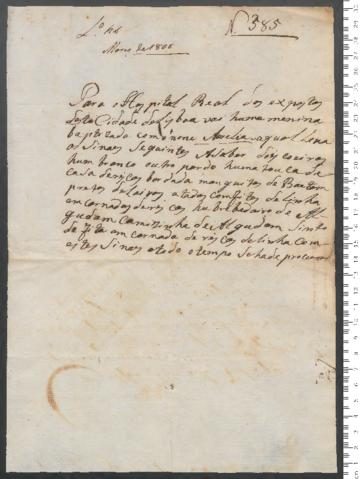 Lº 48
Nº 385
Março de 1806
Para o Hospital Real dos expostos
desta Cidade de Lixboa vai huma menina
baptizada com o nome Amelia aqual leva
os Sinaes Seguintes Asaber dois coeiros
hum branco outro pardo huma touca de
casa de riscos bordada manguitos de Baetam
pretos de laços atados com fitos de linha
emcarnados de riscos hu babedoiro de Al
gudam camizinha de Algudam Sinto
de fita emcarnada de riscos de linha com
estes Sinaes atodo otempo Sehade procurar